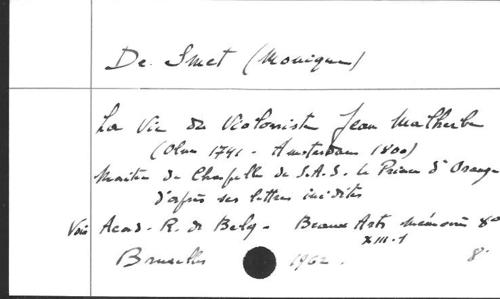 De Smet (Monique)
La Vie du Violoniste Jean Malherbe
(Olne 1741 - Amsterdam 1800)
Maître de Chapelle de S.A.S. le Prince d'Orange
d'après ses lettres inédites
Voir Acad. R. de Belg. - Beaux Arts mémoires 8o
XIII.1
Bruxelles 1962. 8°